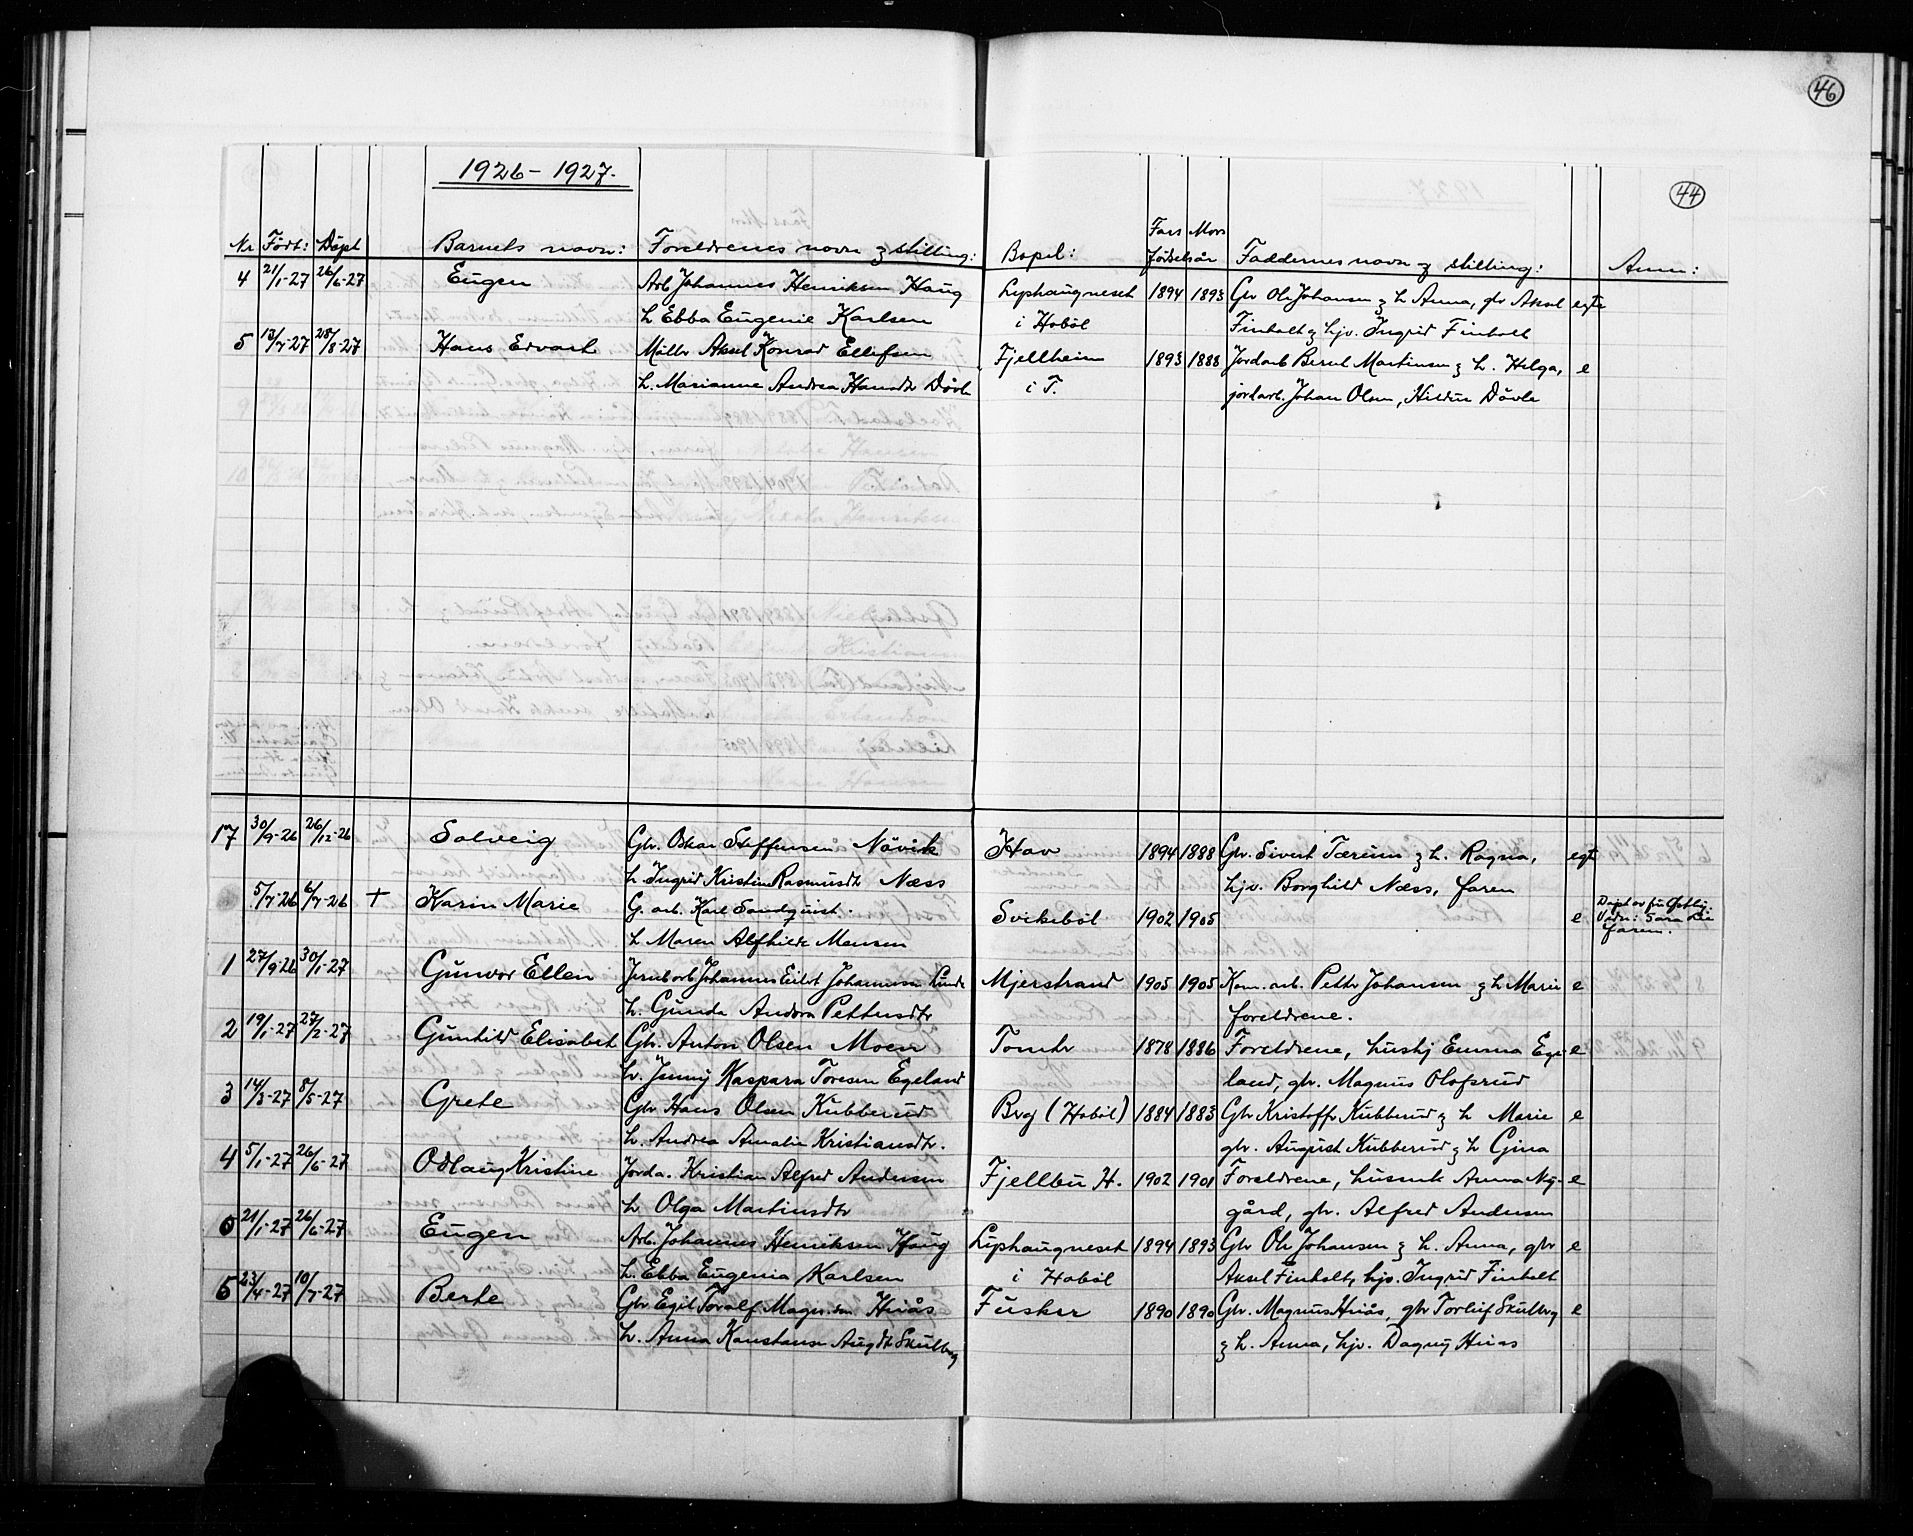 46
1926 - 1927.
44
Nr Født: Døpt Barnets navn: Foreldrenes navn og stilling: Bopel: Fars Mors fødselsår Faddernes navn og stilling: Anm:
4 21/1-27 26/6-27 Eugen Arb. Johannes Henriksen Haug Lyshaugneset 1894 1893 Gbr Ole Johansen og h. Anna, gbr Aksel egte
h Ebba Eugenie Karlsen i Hobøl Finholt og hjv. Ingrid Finholt
5 13/7-27 28/8-27 Hans Edvart Møller Aksel Konrad Ellefsen Fjellheim 1893 1888 Jordarb Bernt Martinsen og h. Helga, e
h. Marianne Andrea Hansdtr Døvle i T. jordarb. Johan Olsen, Hildur Døvle
17 30/9-26 26/12-26 Solveig Gbr. Oskar Steffensen Nøvik Hov 1894 1888 Gbr. Sivert Tærum og h. Ragna, egt
h. Ingrid Kristine Rasmusdtr Næss hjv. Borghild Næss, faren
5/7-26 6/7-26 + Karin Marie G. arb. Karl Sandquist. Svikebøl 1902 1905 e Døpt av fru Østby.
h Maren Alfhilde Monsen faren.
1 27/9-26 30/1-27 Gunvor Ellen Jernb.arb Johannes Johannesen Lunde Mjerstrand 1905 1905 Kom. arb. Petter Johansen og h Marie e
h. Gunda Andora Pettersdtr foreldrene.
2 19/1-27 27/2-27 Gunhild Elisabet Gbr. Anton Olsen Moen Tomtr 1878 1886 Foreldrene, hushj Emma Ege- e
h. Jenny Kaspara Toresen Egeland land, gbr. Magnus Olofsrud
3 14/3-27 8/5-27 Grete Gbr Hans Olsen Kubberud Berg (Hobøl) 1884 1883 Gbr Kristoffer Kubberud og h Marie e
h. Andrea Amalie Kristiansdtr. gbr. August Kubberud og h Gina
4 5/1-27 26/6-27 Odlaug Kristine Jorda. Kristian Alfred Andersen Fjellbu H. 1902 1901 Foreldrene, husmk Anna Ny- e
h Olga Martinsdtr gård, gbr. Alfred Andersen
0 21/1-27 26/6-27 Eugen Arb. Johannes Henriksen Haug Lyshaugneset 1894 1893 Gbr Ole Johansen og h. Anna, gbr e
h. Ebba Eugenia Karlsen i Hobøl Aksel Finholt, hjv. Ingrid Finholt
5 23/4-27 10/7-27 Berte Gbr Egil Toralf Magn.sen Huås Fusker 1890 1890 Gbr. Magnus Huås, gbr Torleif Skulberg e
h. Anna Konstanse Aug.dtr Skulberg og h. Anna, hjv. Dagny Huås